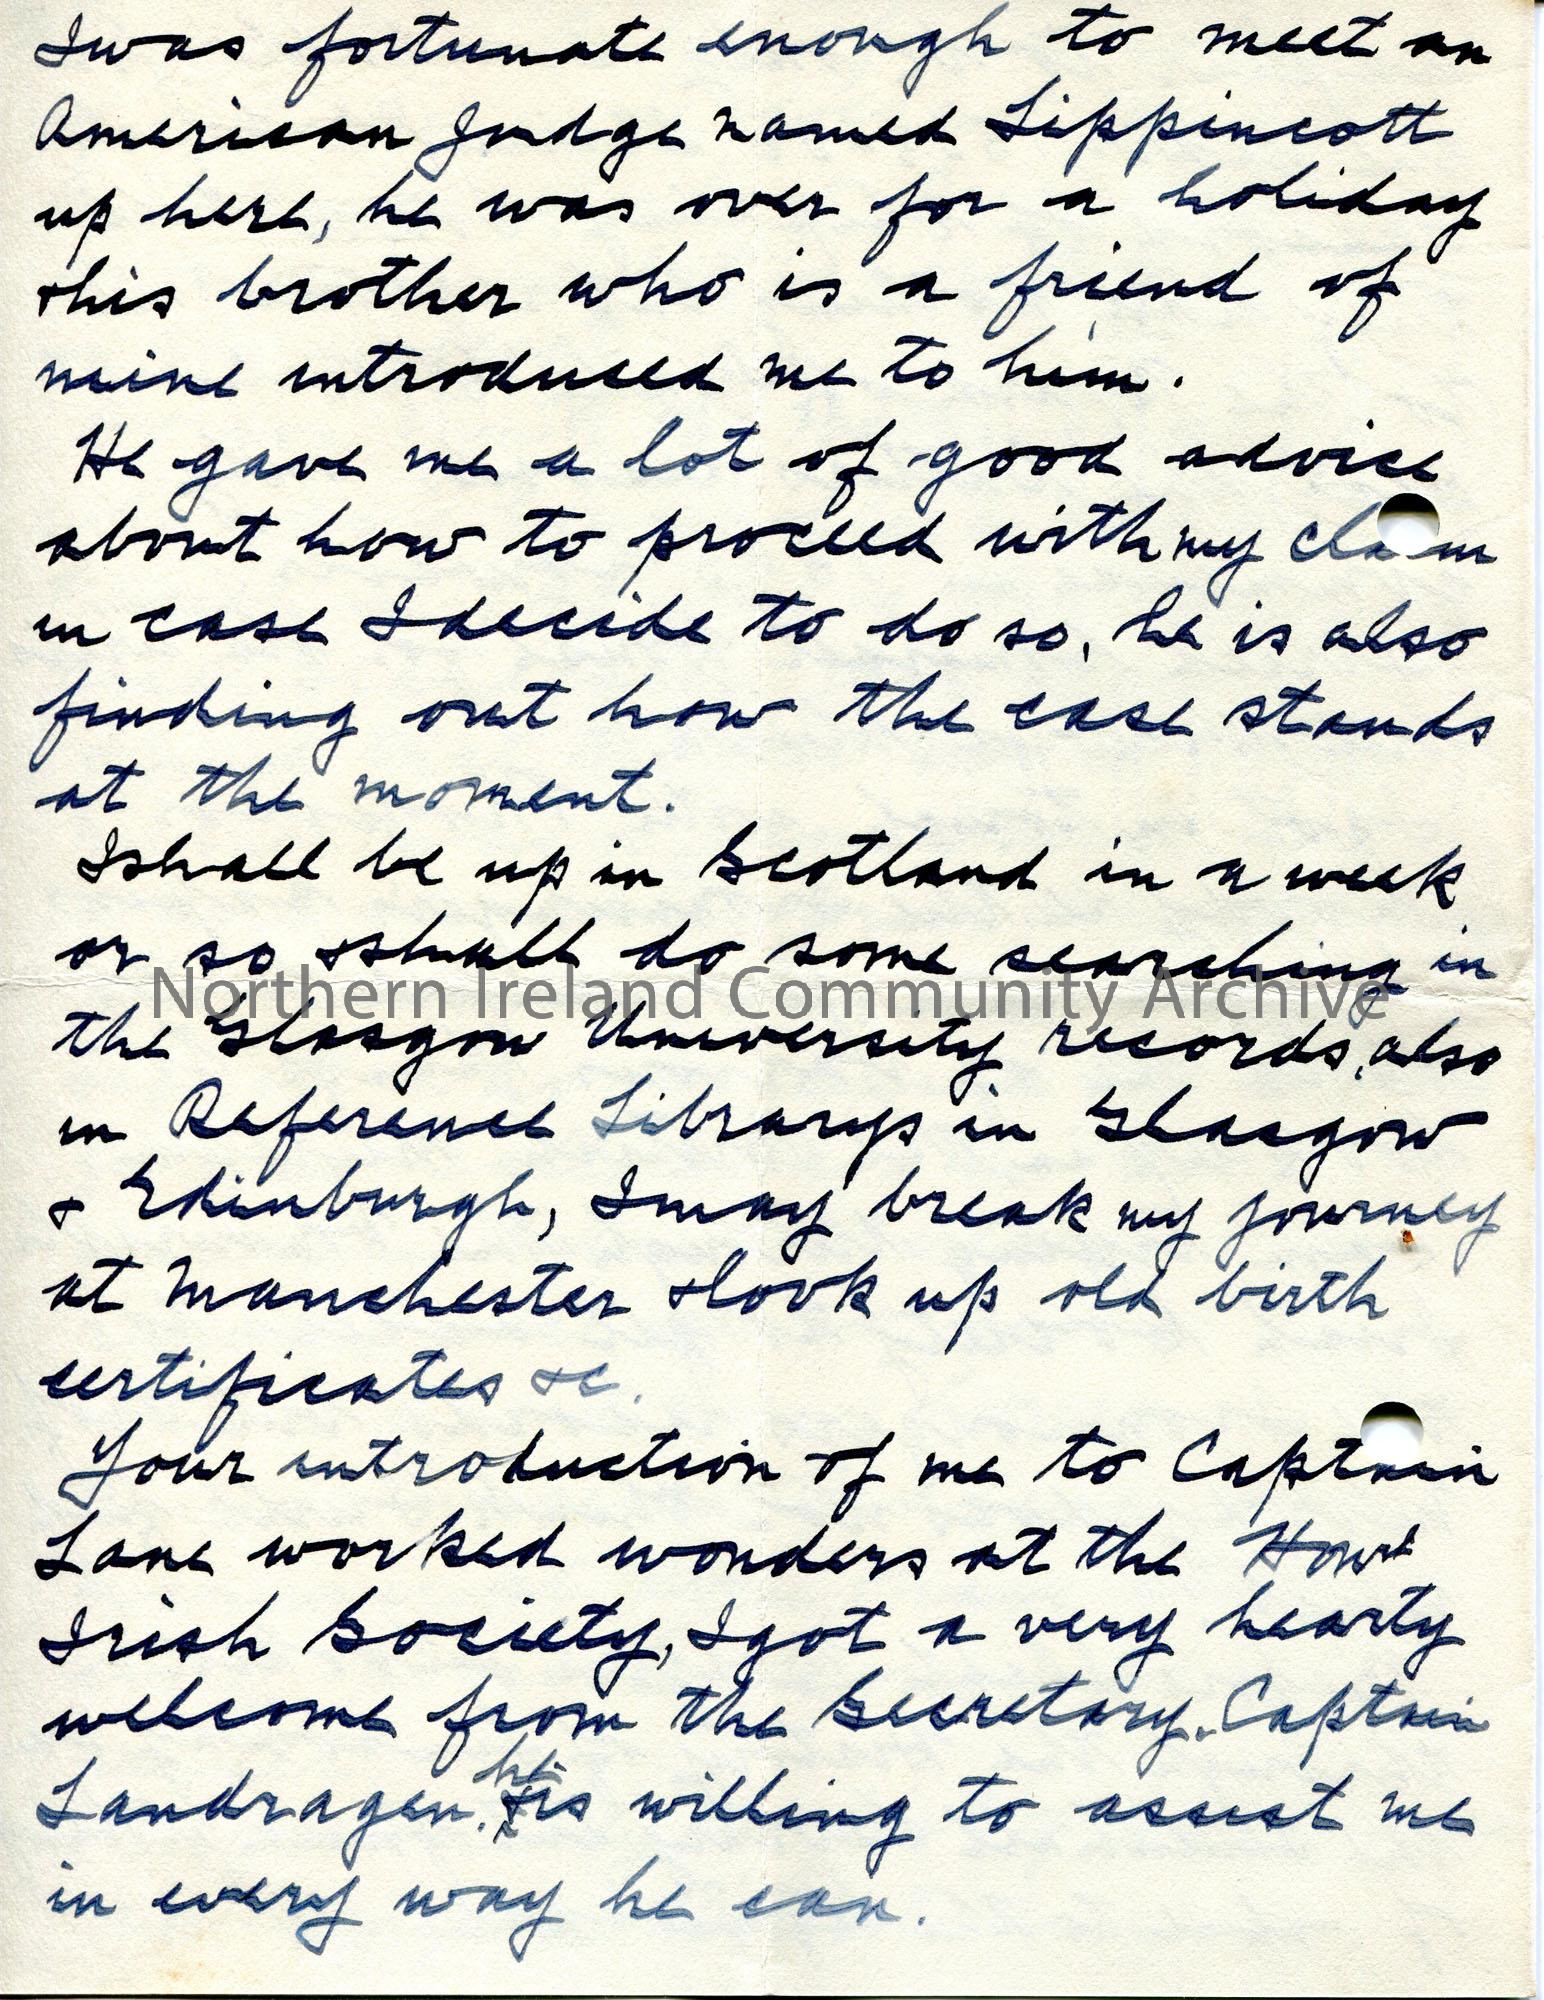 I was fortunate enough to meet an
American Judge named Lippincott
up here, he was over for a holiday
& his brother who is a friend of
mine introduced me to him.
He gave me a lot of good advice
about how to proceed with my claim
in case I decide to do so, he is also
finding out how the case stands
at the moment.
I shall be up in Scotland in a week
or so & shall do some searching in
Northern Ireland Community Archive
the Glasgow University records, also
in Reference Librarys in Glasgow
& Edinburgh, I may break my journey
at Manchester & look up old birth
certificates &c.
Your introduction of me to Captain
Lane worked wonders at the Honrl
Irish Society, I got a very hearty
welcome from the Secretary. Captain
Landragen. he is willing to assist me
in every way he can.